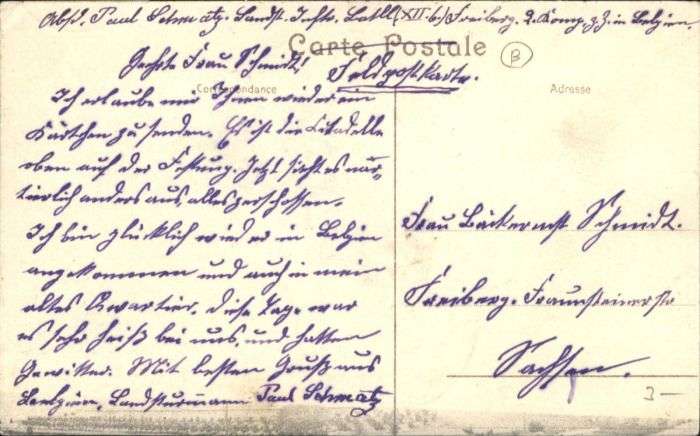 Absd. Paul Schmatz. Landst. Inftr. Batll (XII 6.) Freiberg. 2. Komp. z. Z. in Belgien.
Carte Postale
B
Geehrte Frau Schmidt!
Feldpostkarte.
Correspondance
Adresse
Ich erlaube mir Ihnen wieder ein
Kärtchen zu senden. Es ist die Citadelle
oben auf der Festung. Jetzt sieht es nat-
ürlich anders aus, alles zerschossen.
Ich bin glücklich wieder in Belgien
angekommen und auch in mein
altes Quartier. Diese Tage war
es sehr heiß bei uns, und hatten
Gewitter. Mit besten Gruß aus
Belgien, Landsturmmann Paul Schmatz
Frau Bäckermst Schmidt.
Freiberg. Frauensteinerstr
Sachsen.
3 —